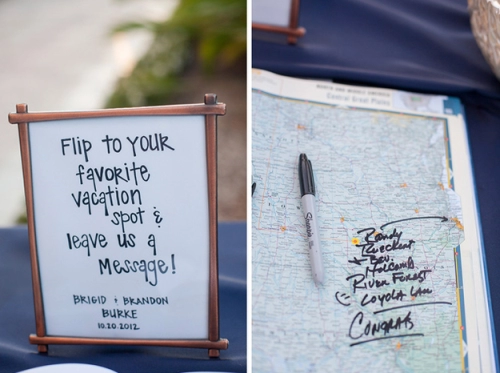 Flip to YOUR
favorite
vacation
spot &
leave us a
Message!
BRIGID + BRANDON
BURKE
10.20.2012
Central Great Plains
Sharpie
Randy
Bev
Holcomb
RIVER FOREST
LOYOLA LAW
CONGRATS